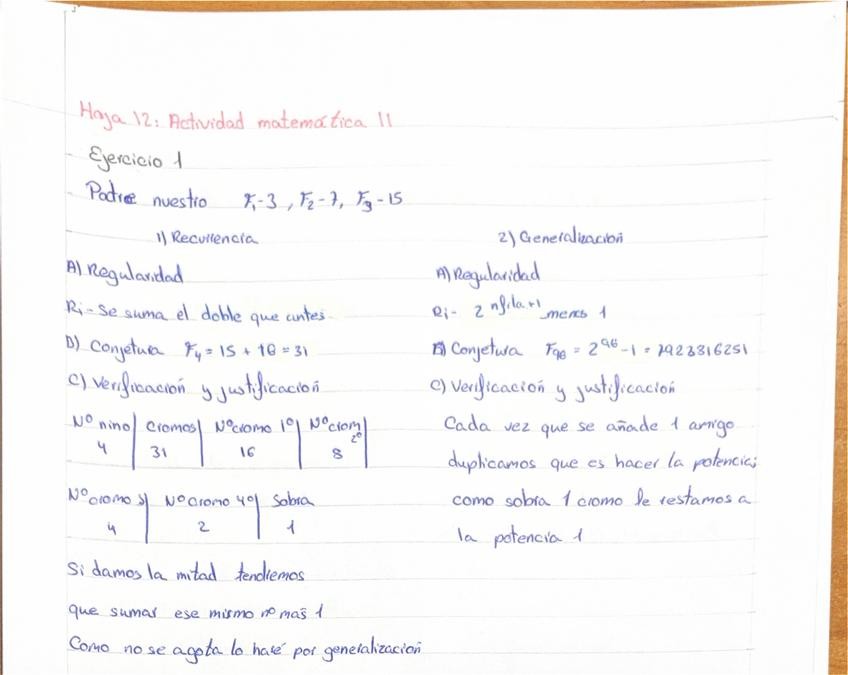 Hoja 12: Actividad matemática 11
Ejercicio 1
Padre nuestro F₁-3, F₂-7, F₃-15
1) Recurrencia
A) Regularidad
Ri- Se suma el doble que antes
B) Conjetura F₄ = 15 + 16 = 31
C) Verificación y justificación
Nº nino | Cromos | Nº cromo 1º | Nº crom 2º
4 | 31 | 16 | 8
Nº cromo 3| Nº cromo 4º| Sobra
4 | 2 | 1
Si damos la mitad tendremos
que sumar ese mismo nº mas 1
Como no se agota lo haré por generalización
2) Generalización
A) Regularidad
Ri- 2 nfila+1 menos 1
B) Conjetura = 2⁹⁶ - 1 =
C) Verificación y justificación
Cada vez que se añade 1 amigo
duplicamos que es hacer la potencia;
como sobra 1 cromo le restamos a
la potencia 1